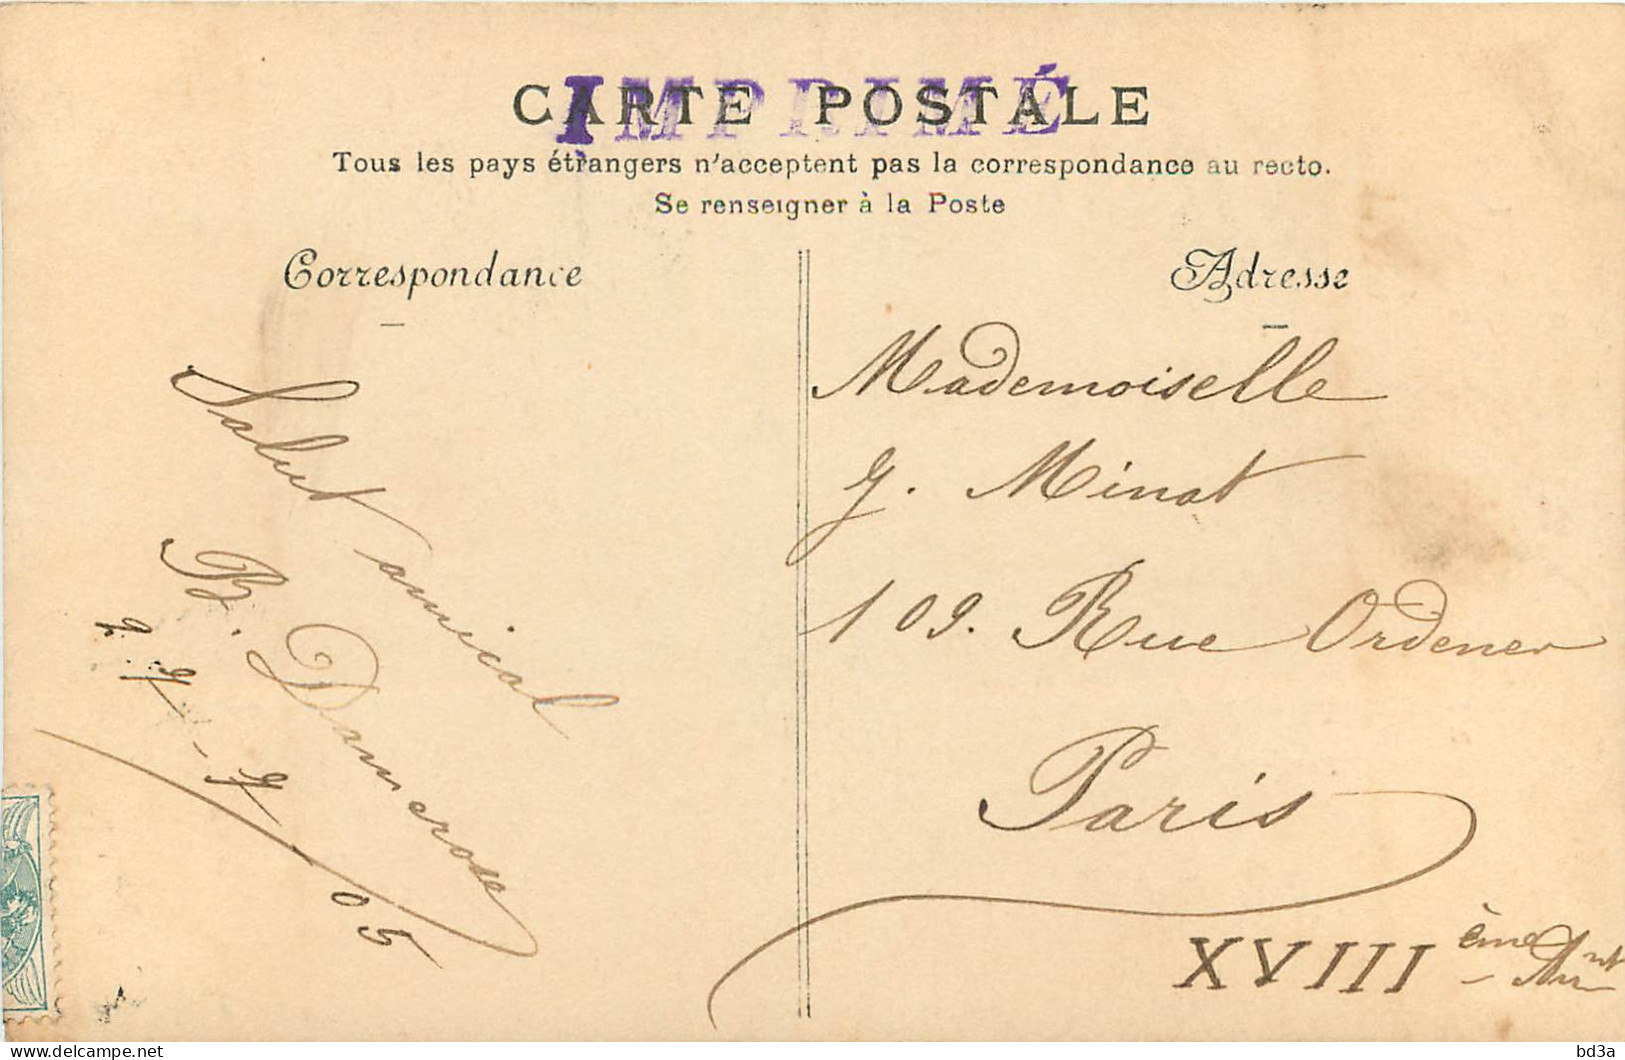 CARTE POSTALE
IMPRIMÉ
Tous les pays étrangers n'acceptent pas la correspondance au recto.
Se renseigner à la Poste
Correspondance
Salut amical
B. Damerose
05
Adresse
Mademoiselle
G. Minat
109. Rue Ordener
Paris
XVIII ème Arrnt
bd3a